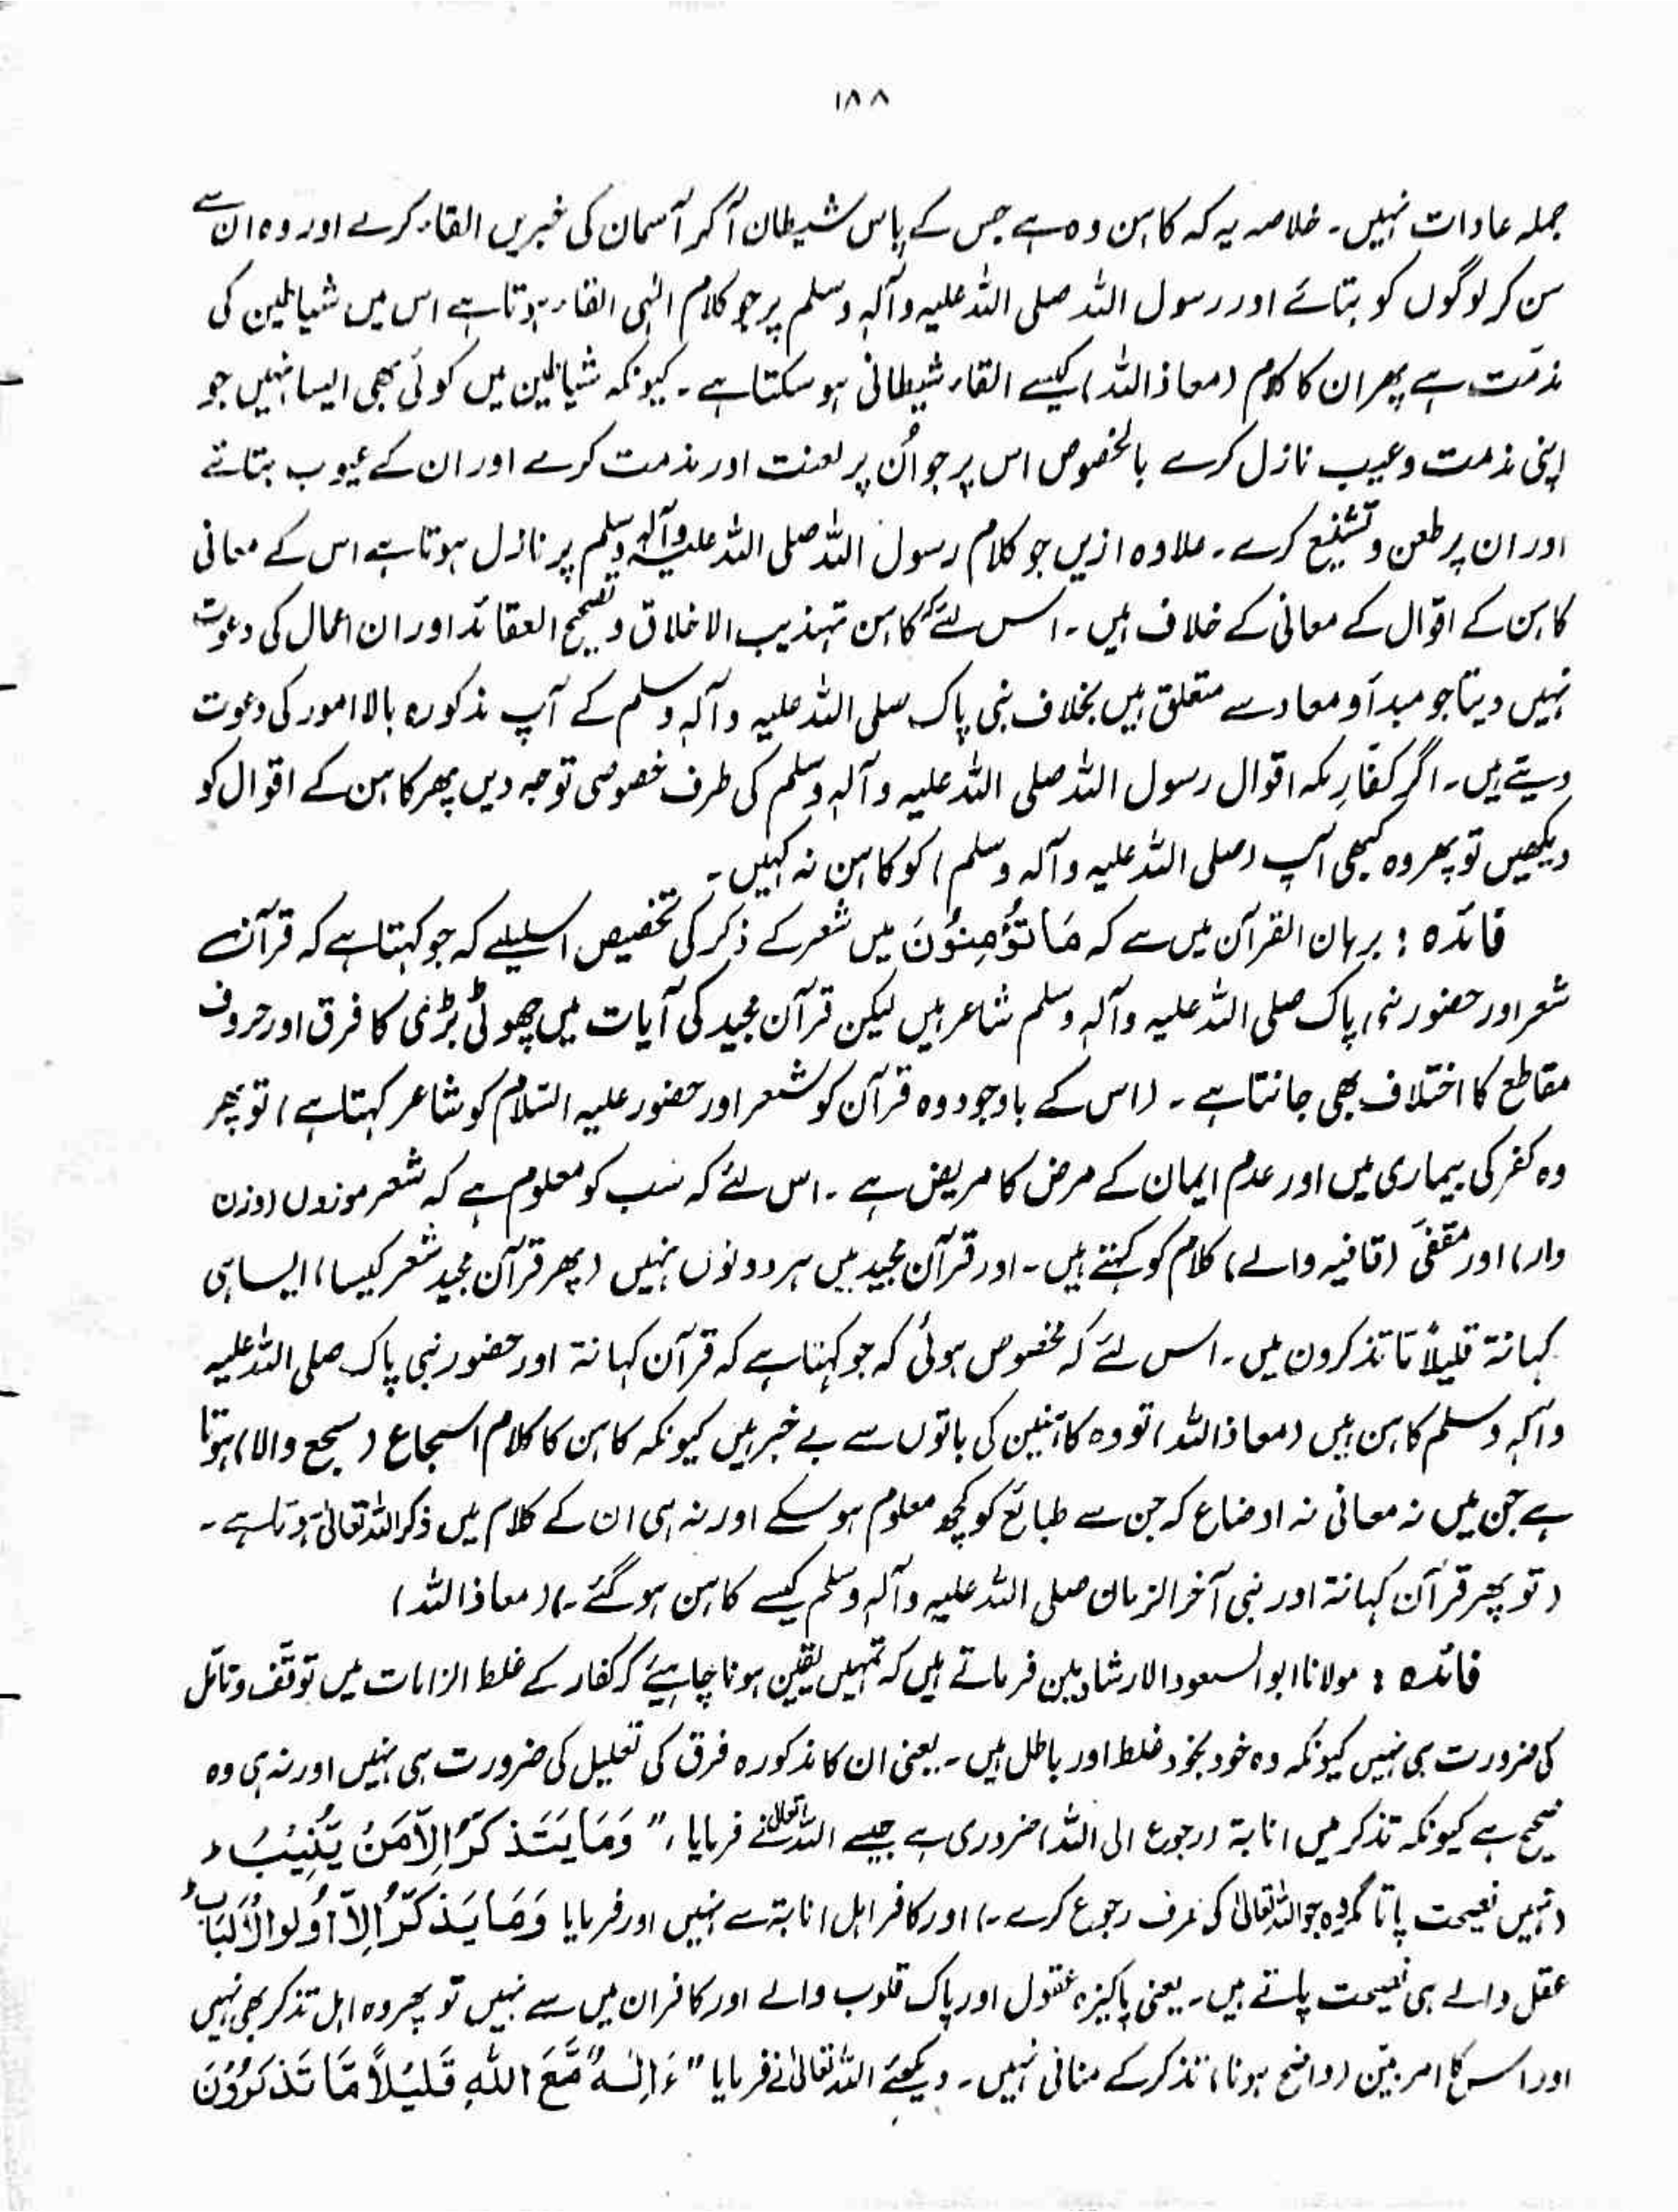 ۱۸۸
جملہ عادات نہیں۔ خلاصہ یہ کہ کاہن وہ ہے جس کے پاس شیطان آکر آسمان کی خبریں القاء کرے اور وہ ان سے
سن کر لوگوں کو بتائے اور رسول اللہ صلی اللہ علیہ وآلہٖ وسلم پر جو کلام الٰہی القاء ہوتا ہے اس میں شیاطین کی
مذمّت ہے پھر ان کا کلام (معاذ اللہ) کیسے القاء شیطانی ہو سکتا ہے۔ کیونکہ شیاطین میں کوئی بھی ایسا نہیں جو
اپنی مذمت وعیب نازل کرے بالخصوص اس پر جو اُن پر لعنت اور مذمت کرے اور ان کے عیوب بتاتے
اور ان پر طعن وتشنیع کرے۔ علاوہ ازیں جو کلام رسول اللہ صلی اللہ علیہ وآلہٖ وسلم پر نازل ہوتا ہے اس کے معانی
کاہن کے اقوال کے معانی کے خلاف ہیں۔ اس لئے کہ کاہن تہذیب الاخلاق وتصحیح العقائد اور ان اعمال کی دعوت
نہیں دیتا جو مبدأ ومعاد سے متعلق ہیں بخلاف نبی پاک صلی اللہ علیہ وآلہٖ وسلم کے آپ مذکورہ بالا امور کی دعوت
دیتے ہیں۔ اگر کفّارِ مکہ اقوال رسول اللہ صلی اللہ علیہ وآلہٖ وسلم کی طرف خصوصی توجہ دیں پھر کاہن کے اقوال کو
دیکھیں تو پھر وہ کبھی آپ (صلی اللہ علیہ وآلہ وسلم) کو کاہن نہ کہیں۔
فائدہ : برہان القرآن میں سے کہ مَا تُؤْمِنُوْنَ میں شعر کے ذکر کی تخصیص اسلیلے کہ جو کہتا ہے کہ قرآن
شعر اور حضور نبی پاک صلی اللہ علیہ وآلہٖ وسلم شاعر ہیں لیکن قرآن مجید کی آیات میں چھوٹی بڑی کا فرق اور حروف
مقاطع کا اختلاف بھی جانتا ہے۔ (اس کے باوجود وہ قرآن کو شعر اور حضور علیہ السّلام کو شاعر کہتا ہے) تو پھر
وہ کفر کی بیماری میں اور عدم ایمان کے مرض کا مریض ہے۔ اس لئے کہ سب کو معلوم ہے کہ شعر موزوں (وزن
دار) اور مقفّیٰ (قافیہ والے) کلام کو کہتے ہیں۔ اور قرآن مجید میں ہر دونوں نہیں (پھر قرآن مجید شعر کیسا) ایسا ہی
کہانۃ قلیلاً مّا تذکرون میں۔ اس لئے کہ مخصوص ہوئی کہ جو کہتا ہے کہ قرآن کہانۃ اور حضور نبی پاک صلی اللہ علیہ
وآلہٖ وسلم کاہن ہیں (معاذ اللہ) تو وہ کاہنین کی باتوں سے بے خبر ہیں کیونکہ کاہن کا کلام اسجاع (سجع والا) ہوتا
ہے جن میں نہ معانی نہ اوضاع کہ جن سے طبائع کو کچھ معلوم ہو سکے اور نہ ہی ان کے کلام میں ذکر اللہ تعالیٰ ہوتا ہے۔
(تو پھر قرآن کہانۃ اور نبی آخر الزمان صلی اللہ علیہ وآلہٖ وسلم کیسے کاہن ہو گئے۔) (معاذ اللہ)
فائدہ : مولانا ابو السعود الارشاد میں فرماتے ہیں کہ تمہیں یقین ہونا چاہیئے کہ کفار کے غلط الزامات میں توقّف وتأمّل
کی ضرورت ہی نہیں کیونکہ وہ خود بخود غلط اور باطل ہیں۔ یعنی ان کا مذکورہ فرق کی تعلیل کی ضرورت ہی نہیں اور نہ ہی وہ
صحیح ہے کیونکہ تذکر میں انابۃ (رجوع الی اللہ) ضروری ہے جیسے اللہ تعالیٰ نے فرمایا، " وَمَا يَتَذَكَّرُ اِلَّا مَنْ يُّنِيْبُ ء
(نہیں نصیحت پاتا مگر وہ جو اللہ تعالیٰ کی طرف رجوع کرے۔) اور کافر اہل انابۃ سے نہیں اور فرمایا وَمَا يَذَّكَّرُ اِلَّا اُولُوا الْاَلْبَابِ
عقل والے ہی نصیحت پاتے ہیں۔ یعنی پاکیزہ عقول اور پاک قلوب والے اور کافر ان میں سے نہیں تو پھر وہ اہل تذکر بھی نہیں
اور اس کا امر بیّن (واضح ہونا) تذکر کے منافی نہیں۔ دیکھئے اللہ تعالیٰ نے فرمایا " ءَاِلٰہٌ مَّعَ اللہِ قَلِیْلًا مَّا تَذَکَّرُوْنَ